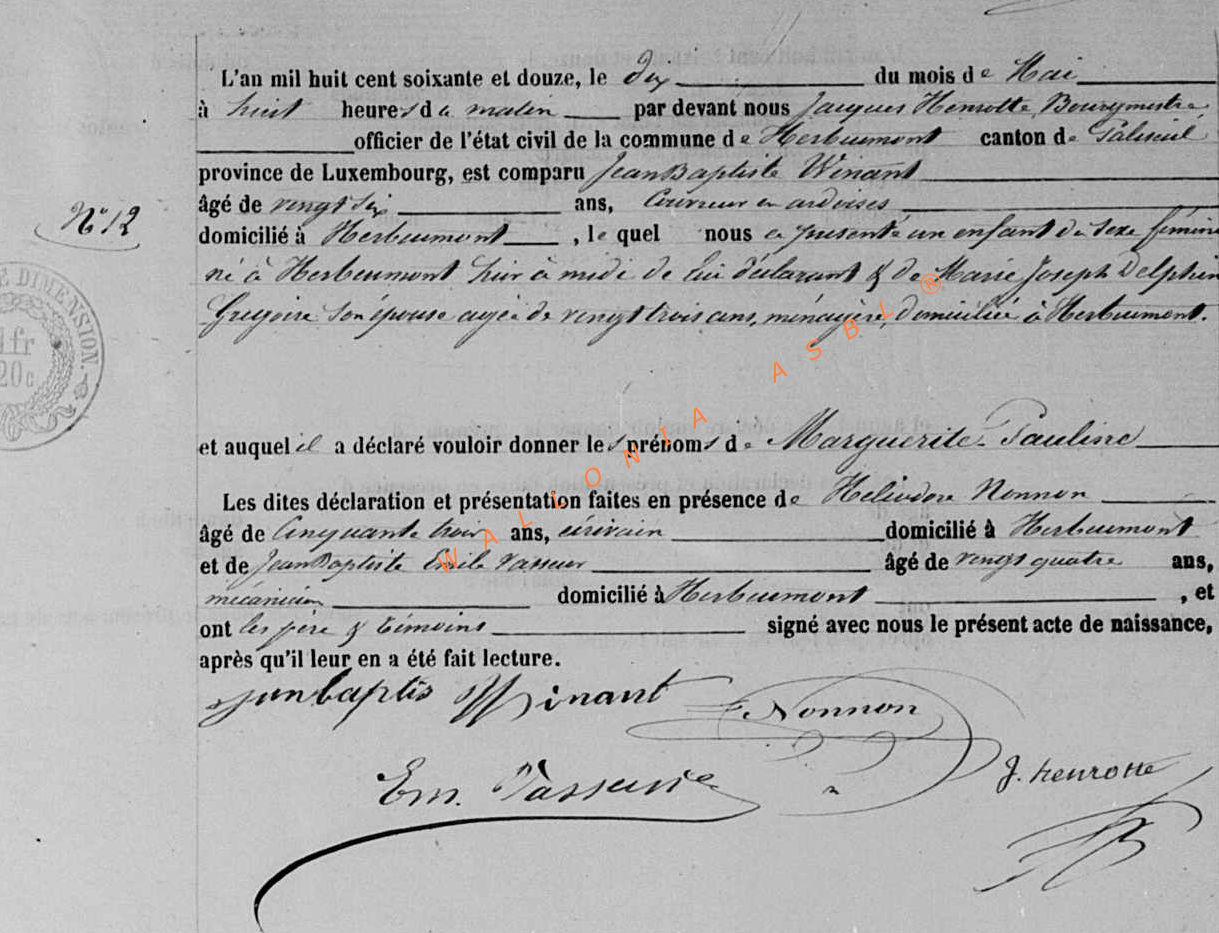 L'an mil huit cent soixante et douze, le dix du mois de Mai
à huit heures du matin par devant nous Jacques Henrotte, Bourgmestre
officier de l'état civil de la commune de Herbeumont canton de Paliseul
province de Luxembourg, est comparu Jean Baptiste Winant
N° 12
âgé de vingt six ans, Couvreur en ardoises
domicilié à Herbeumont, le quel nous a présenté un enfant du sexe féminin
né à Herbeumont hier à midi de lui déclarant & de Marie Joseph Delphin
Gregoire son épouse agée de vingt trois ans, ménagère, domiciliée à Herbeumont.
E DIMENSION.
1 fr
20 c
et auquel il a déclaré vouloir donner les prénoms de Marguerite-Pauline
Les dites déclaration et présentation faites en présence de Heliodore Nonnon
âgé de Cinquante trois ans, écrivain domicilié à Herbeumont
et de Jean Baptiste Emile Vasseur âgé de vingt quatre ans,
mécanicien domicilié à Herbeumont, et
ont les père & témoins signé avec nous le présent acte de naissance,
après qu'il leur en a été fait lecture.
Winant
Nonnon
Em. Vasseur
J. henrotte
WALLONIA ASBL ®